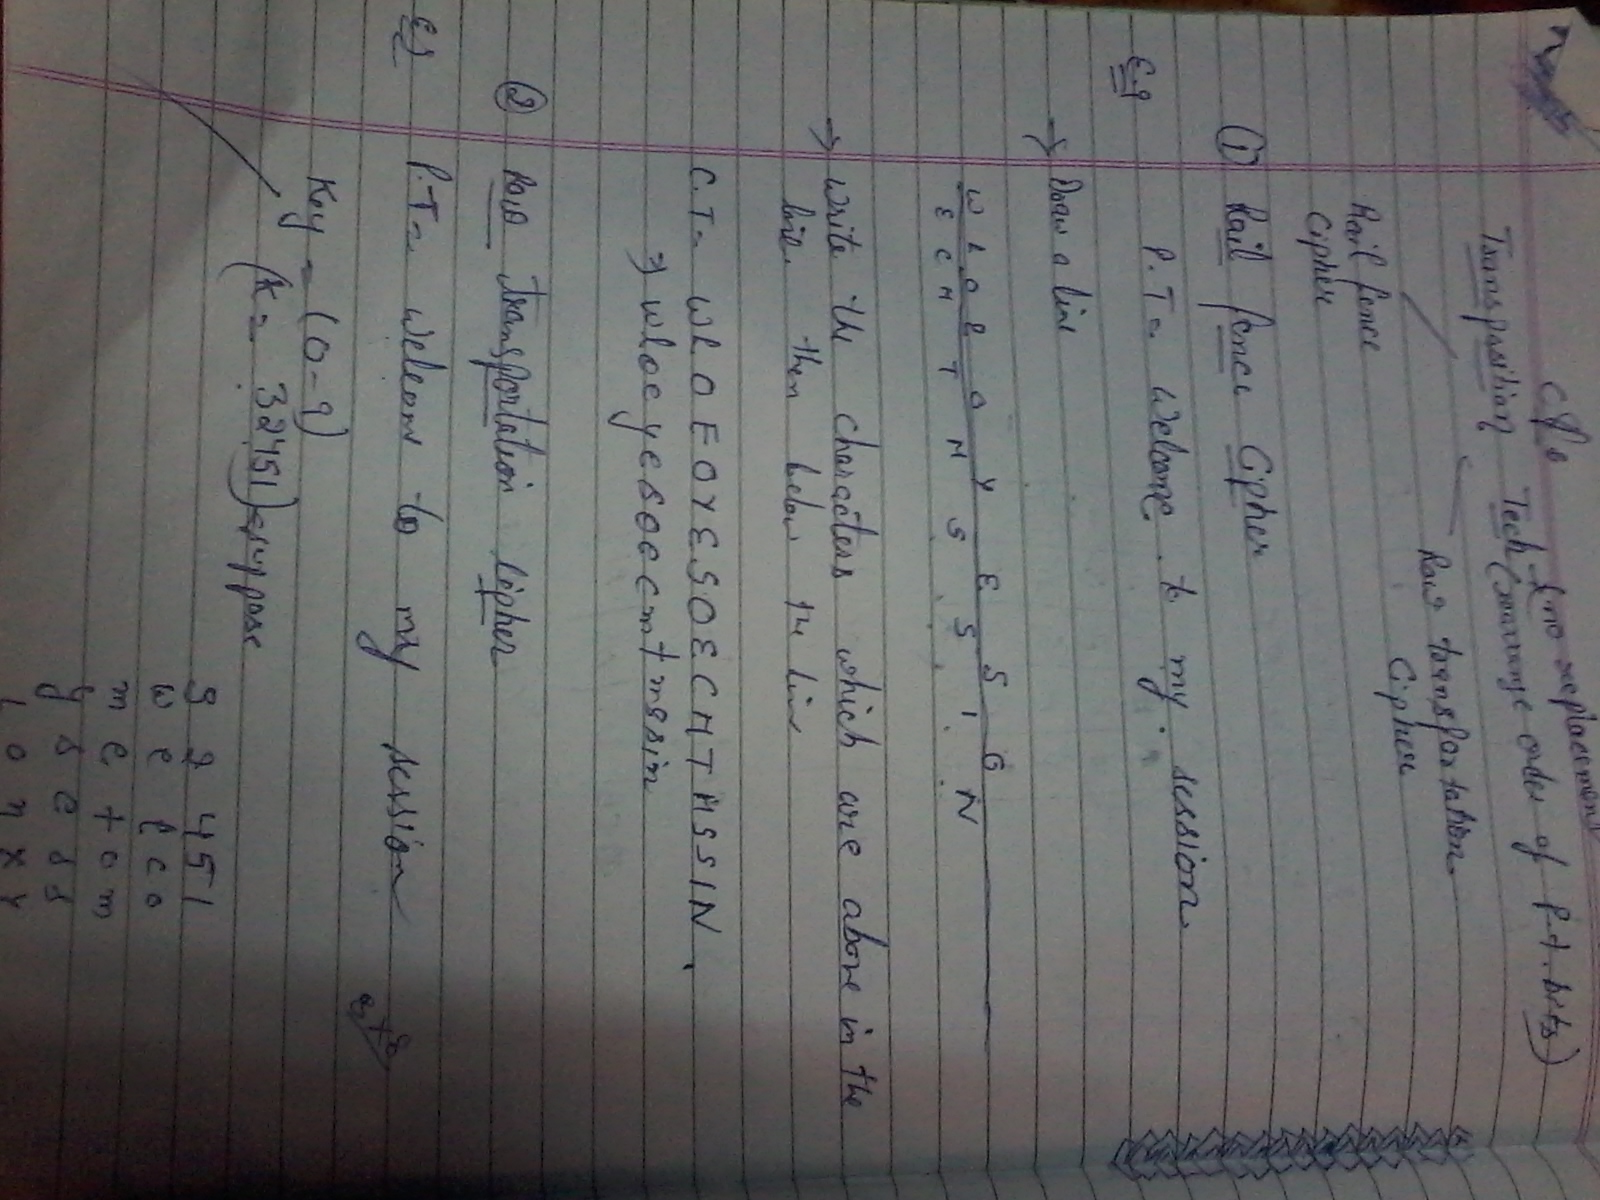 Transpasition Tech (arrange order of P.t. bits)
{no replacement
Rail fence
Cipher
Row transportation
Cipher
① Rail fence Cipher
E.g P.T = Welcome to my session
→ Draw a line
W L O E O Y E S O
E C M T M S S I N
→ Write the characters which are above in the
line then below the line
C.T = WLOEOYESOECMTMSSIN.
⇒ wloeyesoecmtmssin
② Row transportation Cipher
E.g P.T = welcom to my session
Key = (0-9)
(K = 32451) suppose
3 2 4 5 1
w e l c o
m e t o m
y s e s s
i o n x y